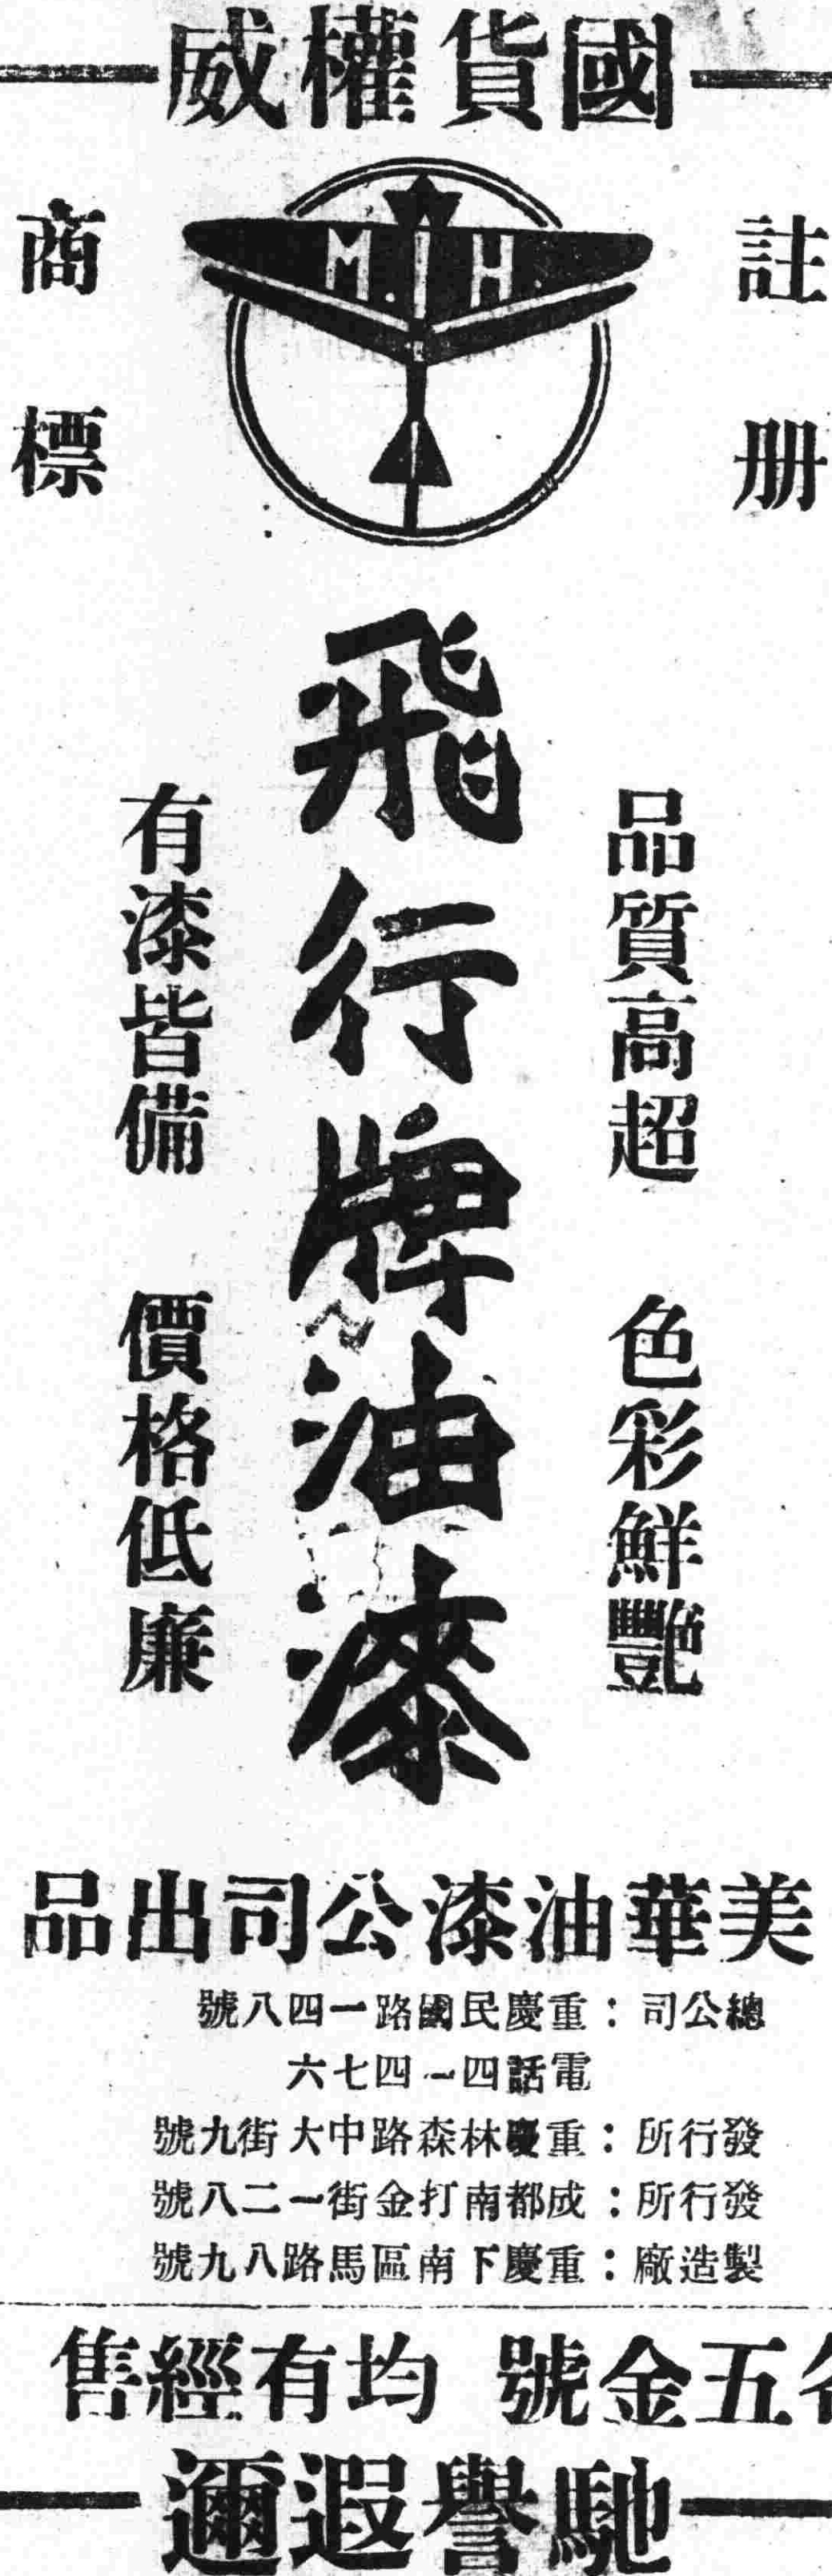 國貨權威
註册
商標
M.I.H.
飛行牌油漆
品質高超 色彩鮮艷
有漆皆備 價格低廉
美華油漆公司出品
總公司：重慶民國路一四八號
電話四一四七六
發行所：重慶林森路中大街九號
發行所：成都南打金街一二八號
製造廠：重慶下南區馬路八九號
各五金號 均有經售
馳譽遐邇